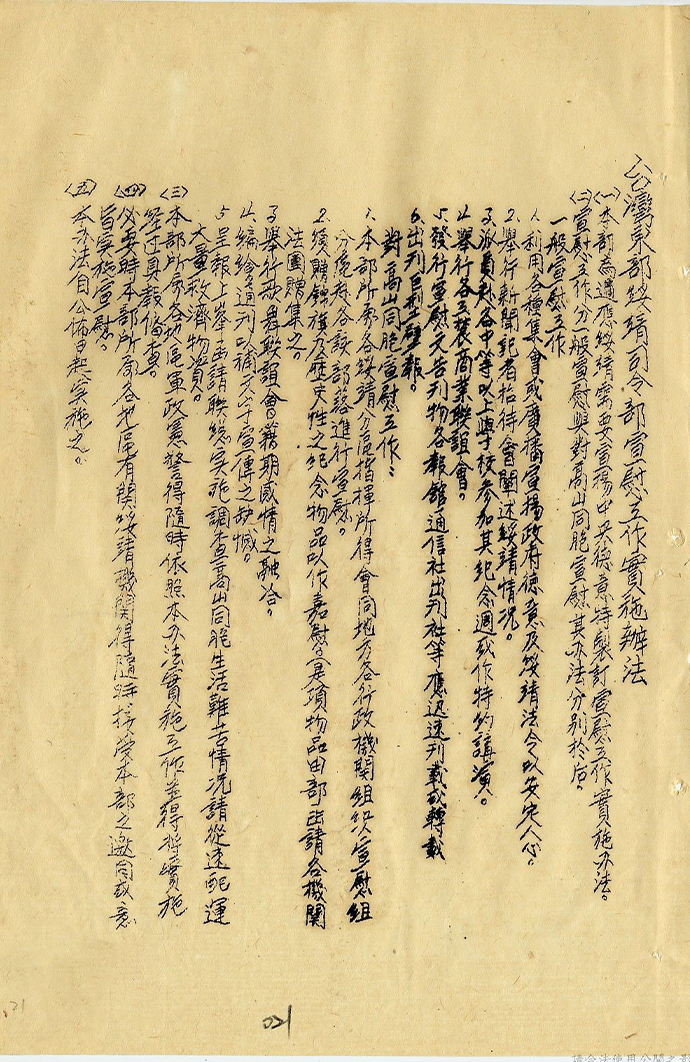 台灣東部綏靖司令部宣慰工作實施辦法
(一)本部為適應綏靖需要宣揚中央德意特製訂宣慰工作實施办法。
(二)宣慰工作分一般宣慰與對高山同胞宣慰其办法分別於后。
一般宣慰工作
1.利用各種集會或廣播宣揚政府德意及綏靖法令以安定人心。
2.舉行新聞記者招待會闡述綏靖情況。
3.派員赴各中等以上學校參加其紀念週或作特約講演。
4.舉行各工裝商業聯誼會。
5.發行宣慰文告刊物各報館通信社出刊社等應迅速刊載或轉載
6.出刊巨型壁報。
對高山同胞宣慰工作：
1.本部所屬各綏靖分區指揮所得會同地方各行政機関組织宣慰組
分區赴各該部落進行宣慰。
2.須贈錦旗及歷史性之紀念物品以作嘉慰是項物品由部函請各機関
法團贈集之。
3.舉行歌舞聯誼會藉期感情之融洽。
4.編繪通刊以補文字宣傳之缺憾。
5.呈報上峯函請联總实施調查高山同胞生活難苦情况請從速配運
大量救濟物資。
(三)本部所屬各地區軍政憲警得隨時依照本办法實施工作並得將實施
經过具報俻查。
(四)必要時本部所屬各地區有関綏靖機関得隨時接策本部之邀同或意
旨实施宣慰。
(五)本办法自公佈日起实施之。
021
21